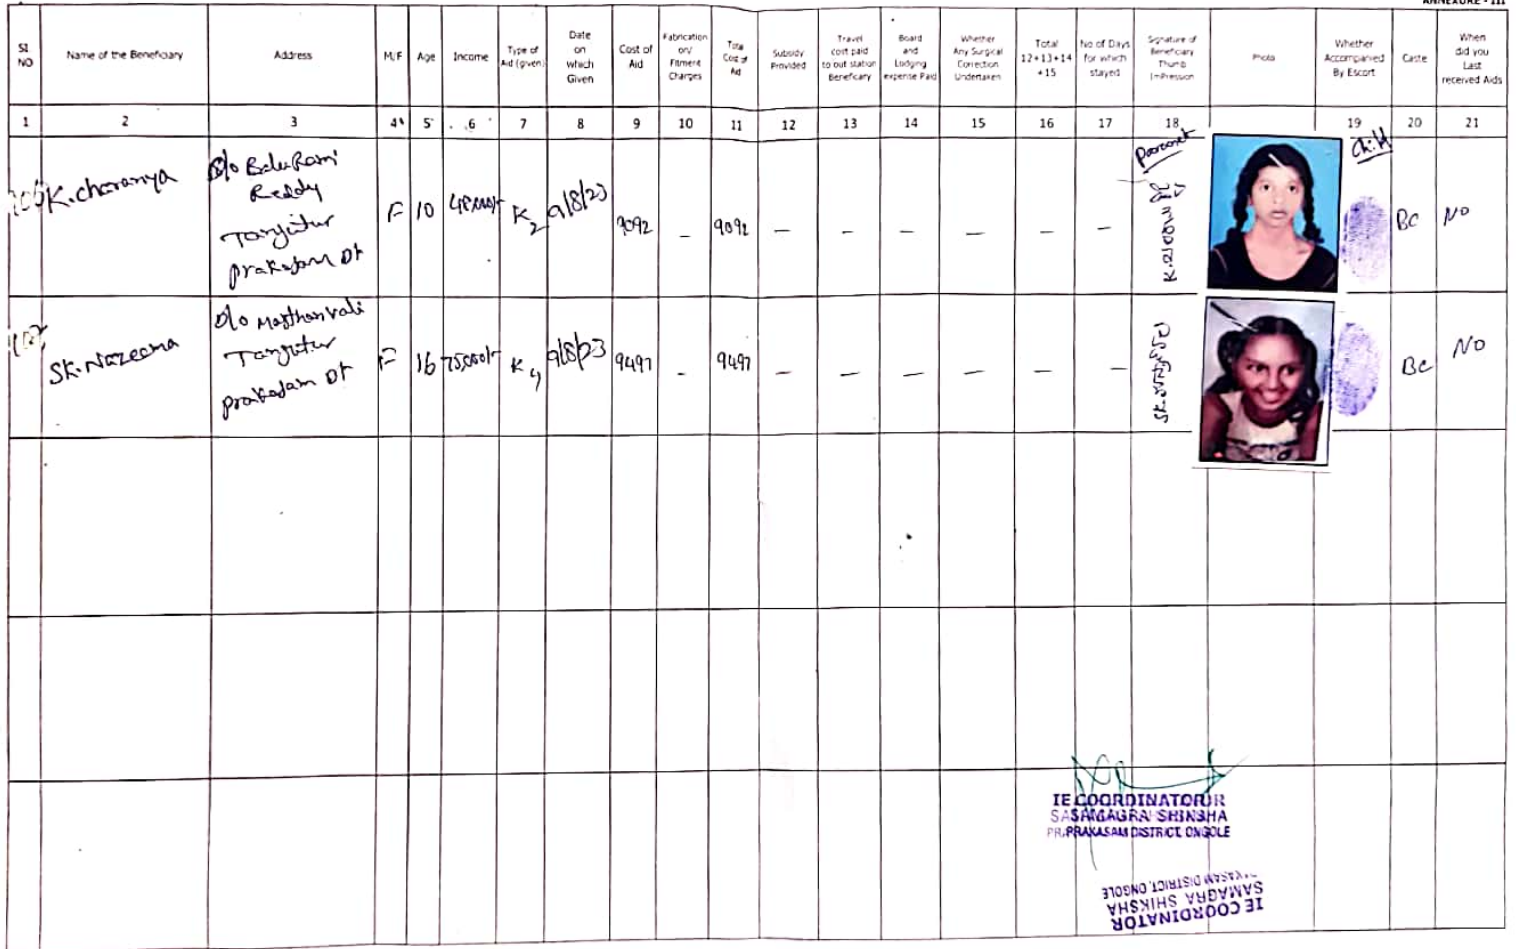 ANNEXURE - III
Sl NO Name of the Beneficiary Address M/F Age Income Type of Aid (given) Date on which Given Cost of Aid Fabrication on/ Fitment Charges Total Cost of Aid Subsidy Provided Travel cost paid to out station Beneficiary Board and Lodging expense Paid Whether Any Surgical Correction Undertaken Total 12+13+14 +15 No of Days for which stayed Signature of Beneficiary Thumb Impression Photo Whether Accompanied By Escort Caste When did you Last received Aids
1 2 3 4 5 6 7 8 9 10 11 12 13 14 15 16 17 18 19 20 21
K. charanya D/o BaluRami Reddy Tangutur Prakasam Dt F 10 48,000/- K2 9/8/23 9092 - 9092 - - - - - - Parent Child BC NO
SK. Nazeema D/o Masthanvali Tangutur prakasam Dt F 16 75,000/- K4 9/8/23 9497 - 9497 - - - - - - BC NO
IE COORDINATOR
SAMAGRA SHIKSHA
PRAKASAM DISTRICT, ONGOLE
IE COORDINATOR
SAMAGRA SHIKSHA
PRAKASAM DISTRICT, ONGOLE